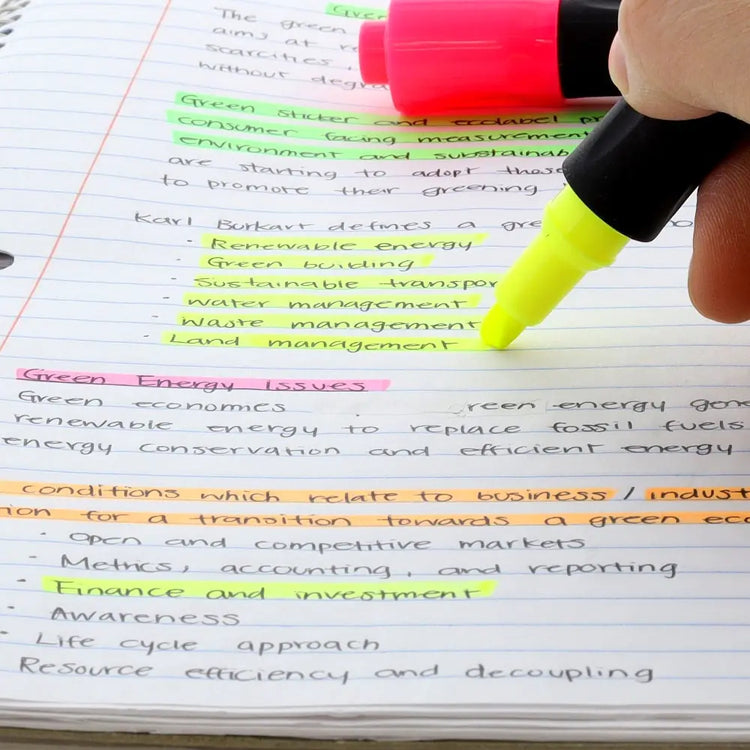 The green
aims at
scarcities,
without
Green sticker and ecolabel
consumer facing measurement
environment and
are starting to adopt these
to promote their greening
Karl Burkart defines a
- Renewable energy
- Green building
- Sustainable
- Water management
- Waste management
- Land management
Green Energy Issues
Green economies energy
renewable energy to replace fossil fuels
energy conservation and efficient energy
conditions which relate to business /
for a transition towards a green
- Open and competitive markets
- Metrics, accounting, and reporting
- Finance and investment
- Awareness
- Life cycle approach
Resource efficiency and decoupling